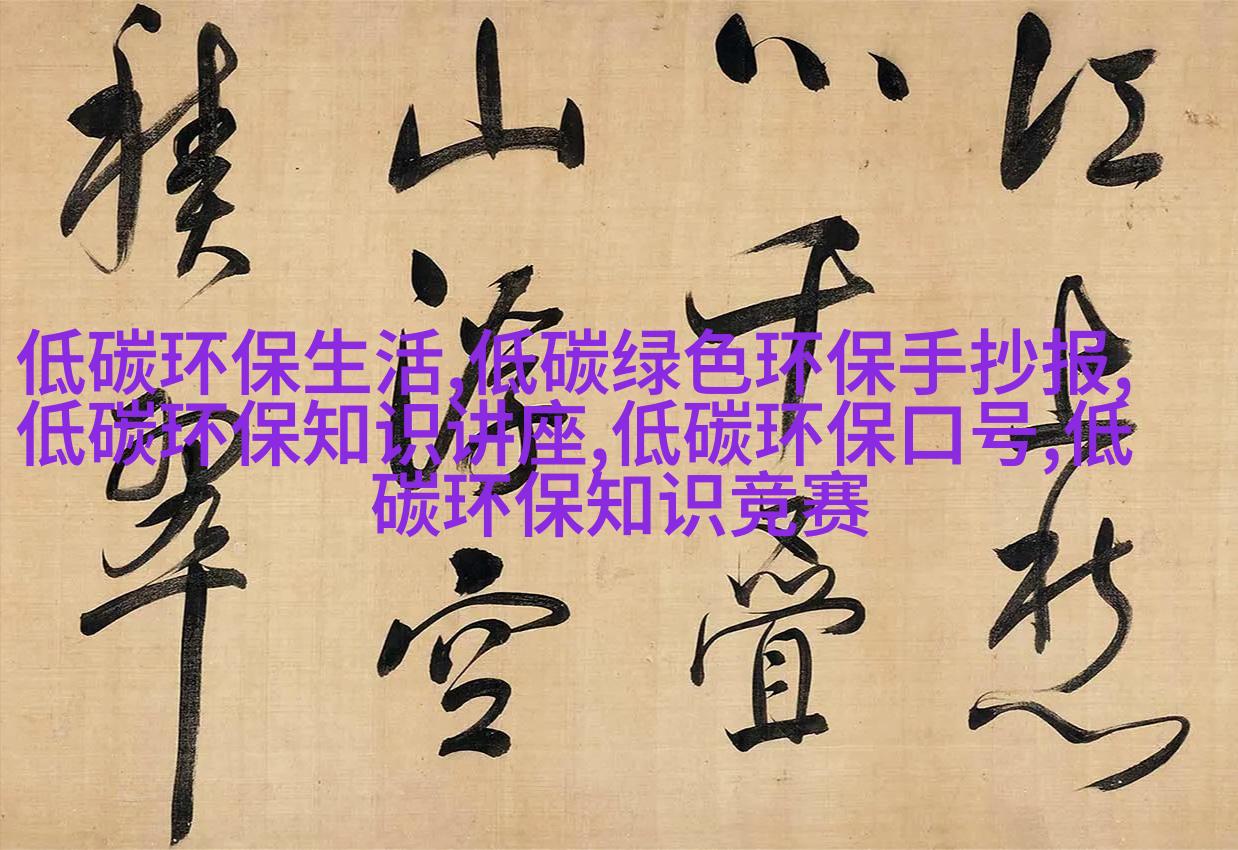 低碳环保生活,低碳绿色环保手抄报,
低碳环保知识讲座,低碳环保口号,低
碳环保知识竞赛
江上愁
心千疊
山浮空
積翠